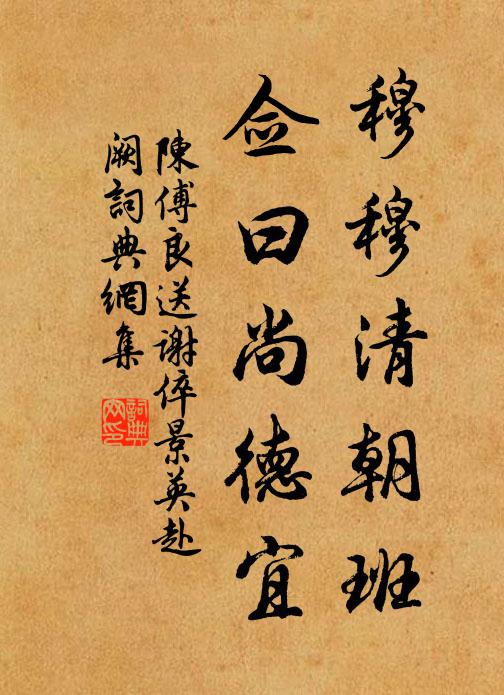 穆穆清朝班
佥曰尚德宜
陳傅良送谢倅景英赴
阙詞典網集
詞典網印